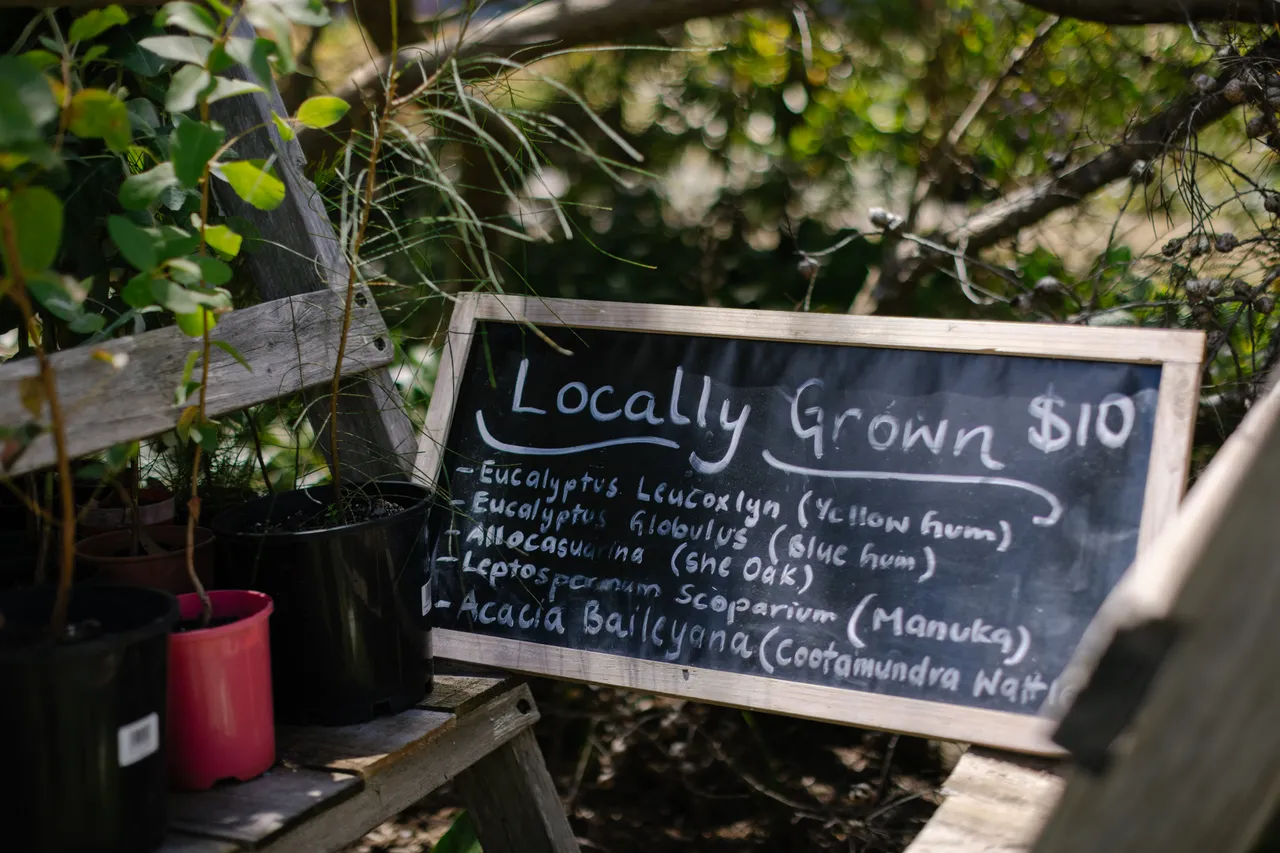 Locally Grown $10
- Eucalyptus Leucoxlyn (Yellow Gum)
- Eucalyptus Globulus (Blue Gum)
- Allocasuarina (She Oak)
- Leptospermum Scoparium (Manuka)
- Acacia Baileyana (Cootamundra